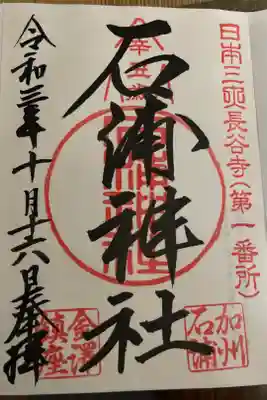 日本三大長谷寺(第一番所)
加州
石浦
石浦神社
金澤
鎮座
令和三年十月十六日奉拝